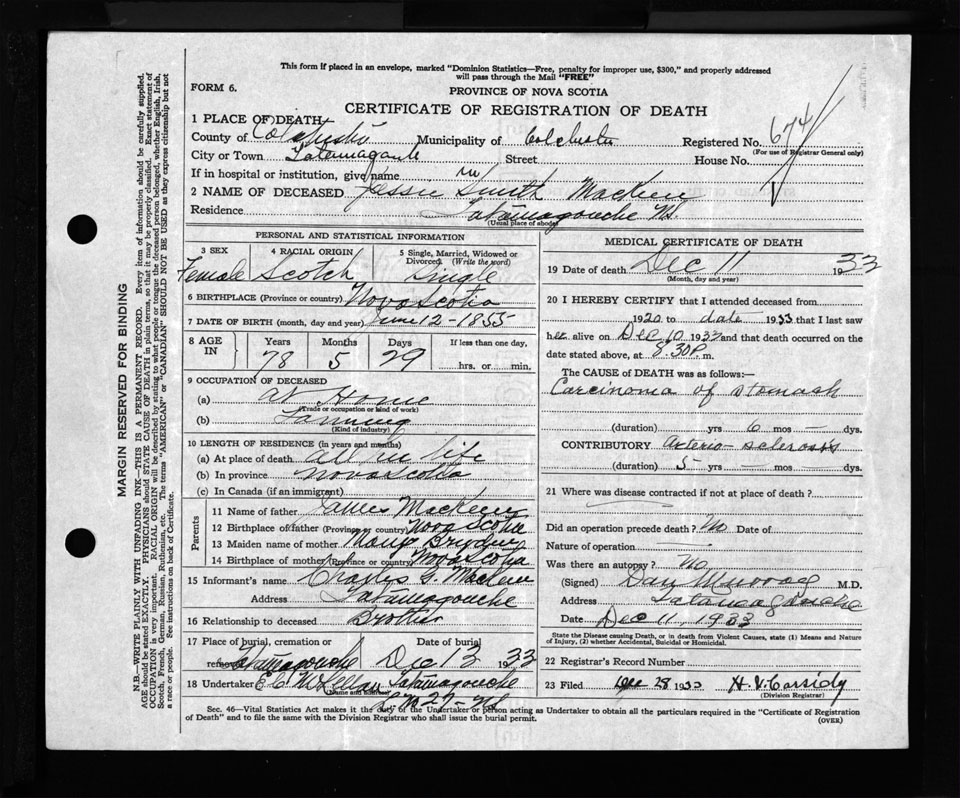 This form if placed in an envelope, marked "Dominion Statistics—Free, penalty for improper use, $300," and properly addressed
will pass through the Mail "FREE"
FORM 6.
PROVINCE OF NOVA SCOTIA
CERTIFICATE OF REGISTRATION OF DEATH
1 PLACE OF DEATH
County of Colchester Municipality of Colchester Registered No. 674
(For use of Registrar General only)
City or Town Tatamagouche Street House No.
If in hospital or institution, give name
2 NAME OF DECEASED Jessie Smith MacKeen
Residence Tatamagouche N.S.
(Usual place of abode)
PERSONAL AND STATISTICAL INFORMATION
3 SEX 4 RACIAL ORIGIN 5 Single, Married, Widowed or
Divorced. (Write the word)
Female Scotch Single
6 BIRTHPLACE (Province or country) Nova Scotia
7 DATE OF BIRTH (month, day and year) June 12-1855
8 AGE IN Years Months Days If less than one day,
78 5 29 hrs. or min.
9 OCCUPATION OF DECEASED
(a) at Home
(Trade or occupation or kind of work)
(b) Farming
(Kind of industry)
10 LENGTH OF RESIDENCE (in years and months)
(a) At place of death all her life
(b) In province Nova Scotia
(c) In Canada (if an immigrant)
Parents
11 Name of father James MacKeen
12 Birthplace of father (Province or country) Nova Scotia
13 Maiden name of mother
14 Birthplace of mother (Province or country) Nova Scotia
15 Informant's name Charles G. MacKeen
Address Tatamagouche
16 Relationship to deceased Brother
17 Place of burial, cremation or Date of burial
removal Tatamagouche Dec 13 1933
18 Undertaker Tatamagouche
(Name and address)
MEDICAL CERTIFICATE OF DEATH
19 Date of death Dec 11 1933
(Month, day and year)
20 I HEREBY CERTIFY that I attended deceased from
1920 to date 1933 that I last saw
her alive on Dec 10 1933 and that death occurred on the
date stated above, at 8.30 P. m.
The CAUSE OF DEATH was as follows:—
Carcinoma of stomach
(duration) yrs 6 mos — dys.
CONTRIBUTORY Arterio-sclerosis
(duration) 5 yrs — mos — dys.
21 Where was disease contracted if not at place of death?
Did an operation precede death? No Date of
Nature of operation —
Was there an autopsy? No
(Signed) Dan Murray M.D.
Address Tatamagouche
Date Dec 11, 1933
State the Disease causing Death, or in death from Violent Causes, state (1) Means and Nature
of Injury, (2) whether Accidental, Suicidal or Homicidal.
22 Registrar's Record Number
23 Filed Dec 28 1933 H. V. Cassidy
(Division Registrar)
Sec. 46—Vital Statistics Act makes it the duty of the Undertaker or person acting as Undertaker to obtain all the particulars required in the "Certificate of Registration
of Death" and to file the same with the Division Registrar who shall issue the burial permit.
(OVER)
MARGIN RESERVED FOR BINDING
N.B.—WRITE PLAINLY WITH UNFADING INK—THIS IS A PERMANENT RECORD. Every item of information should be carefully supplied.
AGE should be stated EXACTLY. PHYSICIANS should STATE CAUSE OF DEATH in plain terms, so that it may be properly classified. Exact statement of
OCCUPATION is very important. RACIAL ORIGIN will be described by stating to what people or tongue the deceased person belonged, whether English, Irish,
Scotch, French, German, Russian, Ruthenian, etc. The terms "AMERICAN" or "CANADIAN" SHOULD NOT BE USED as they express citizenship but not
a race or people. See instructions on back of Certificate.